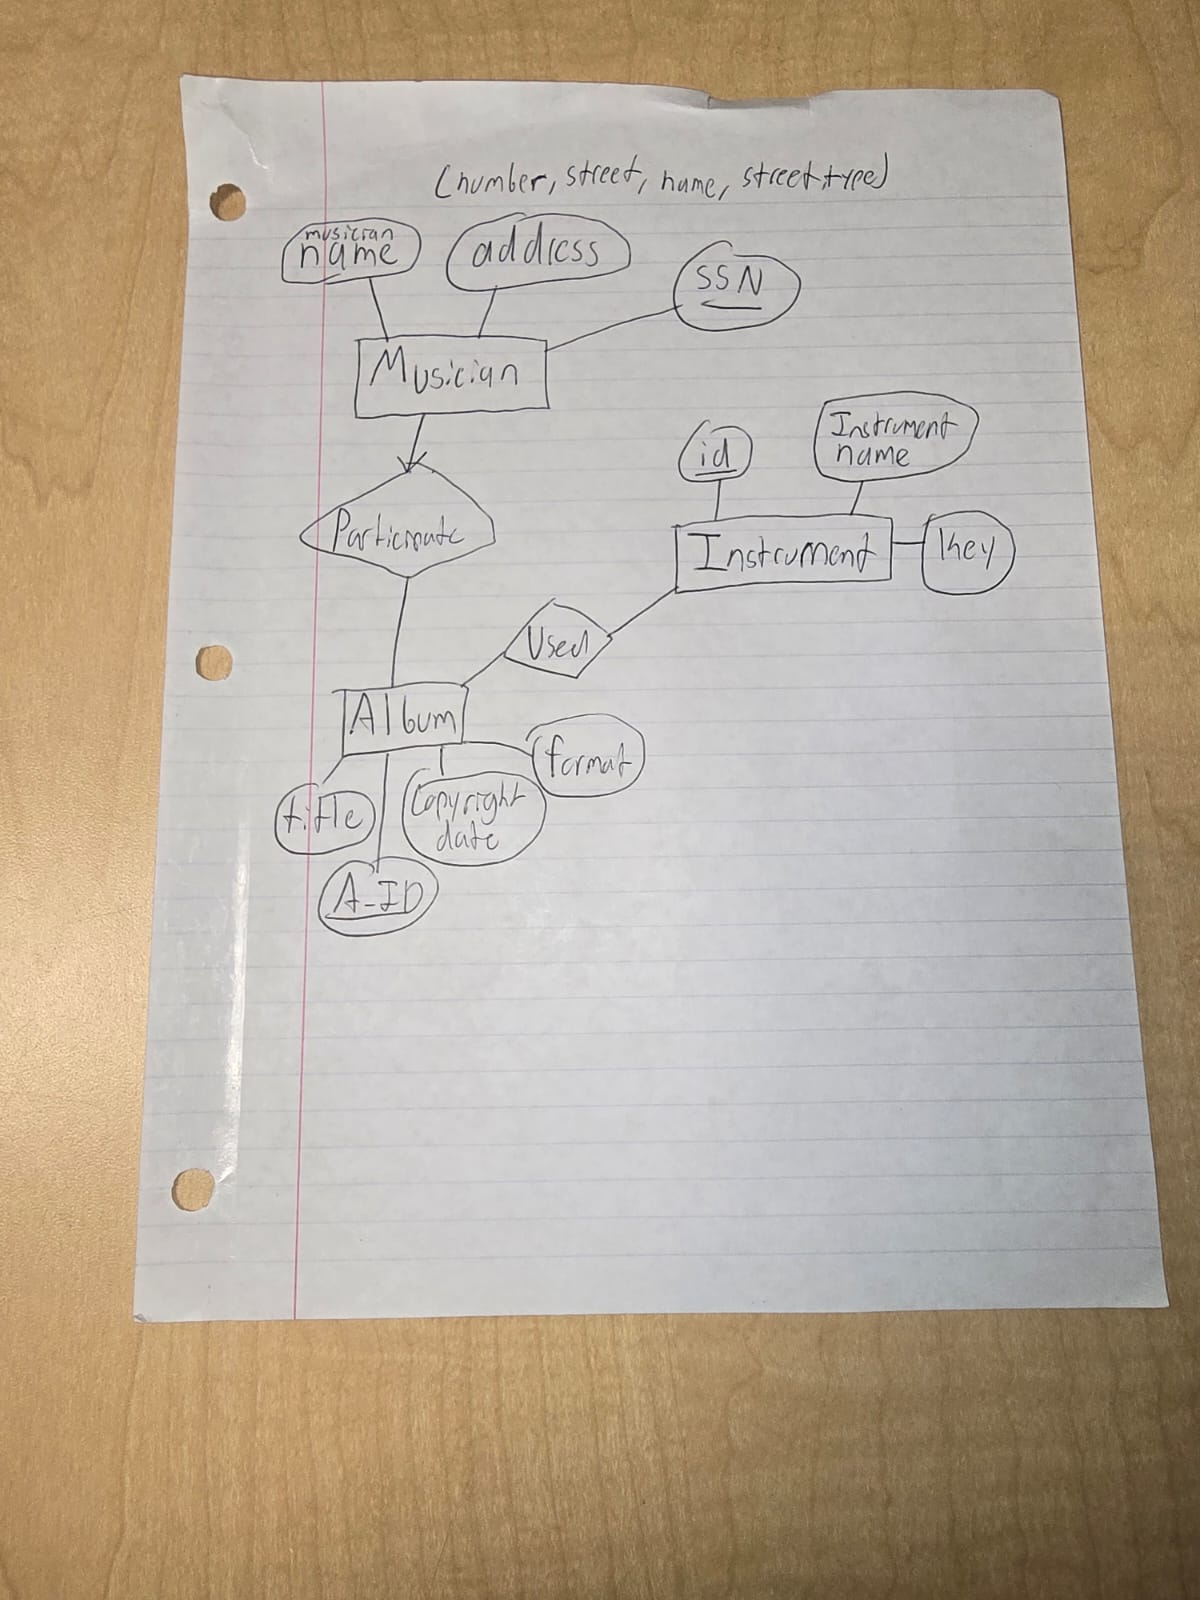 (number, street, name, street, type)
musician
name
address
SSN
Musician
id
Instrument
name
Participate
Instrument
key
Used
Album
format
title
Copyright
date
A-ID